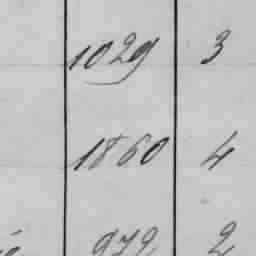 1029 3
1860 4
972 2